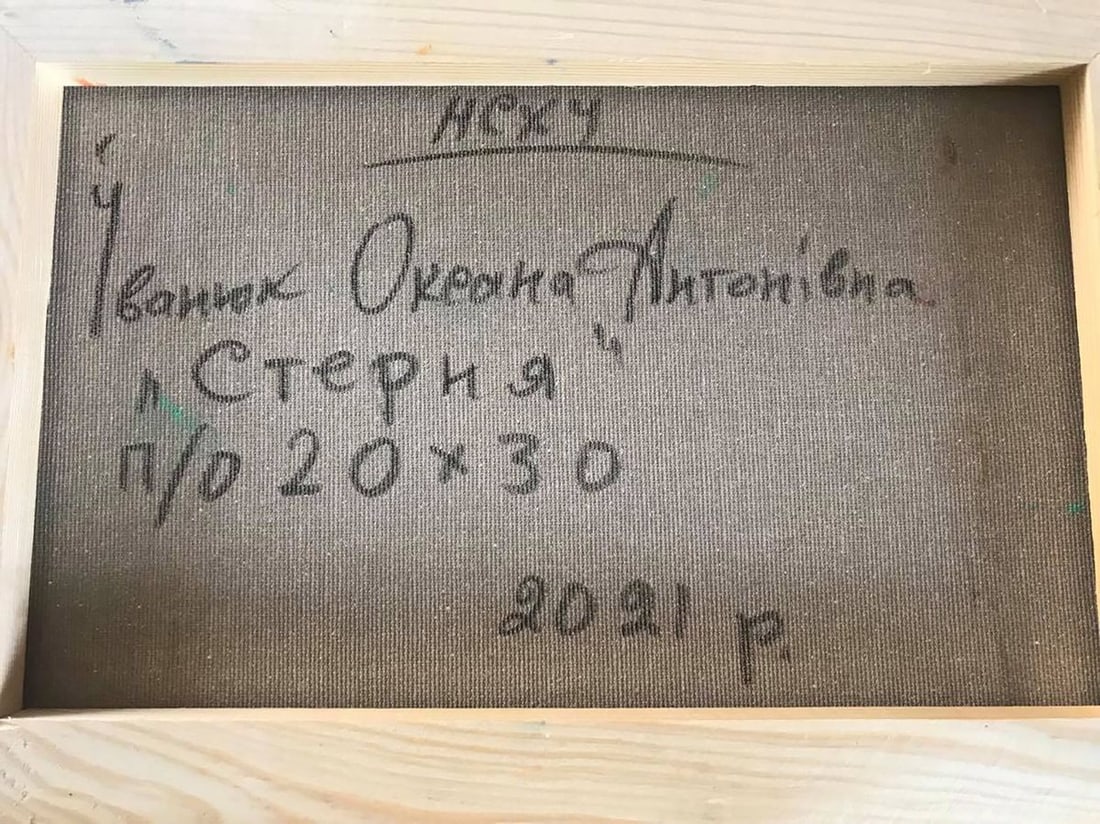 НСХУ
Іванюк Оксана Антонівна
„Стерня"
п/о 20х30
2021 р.